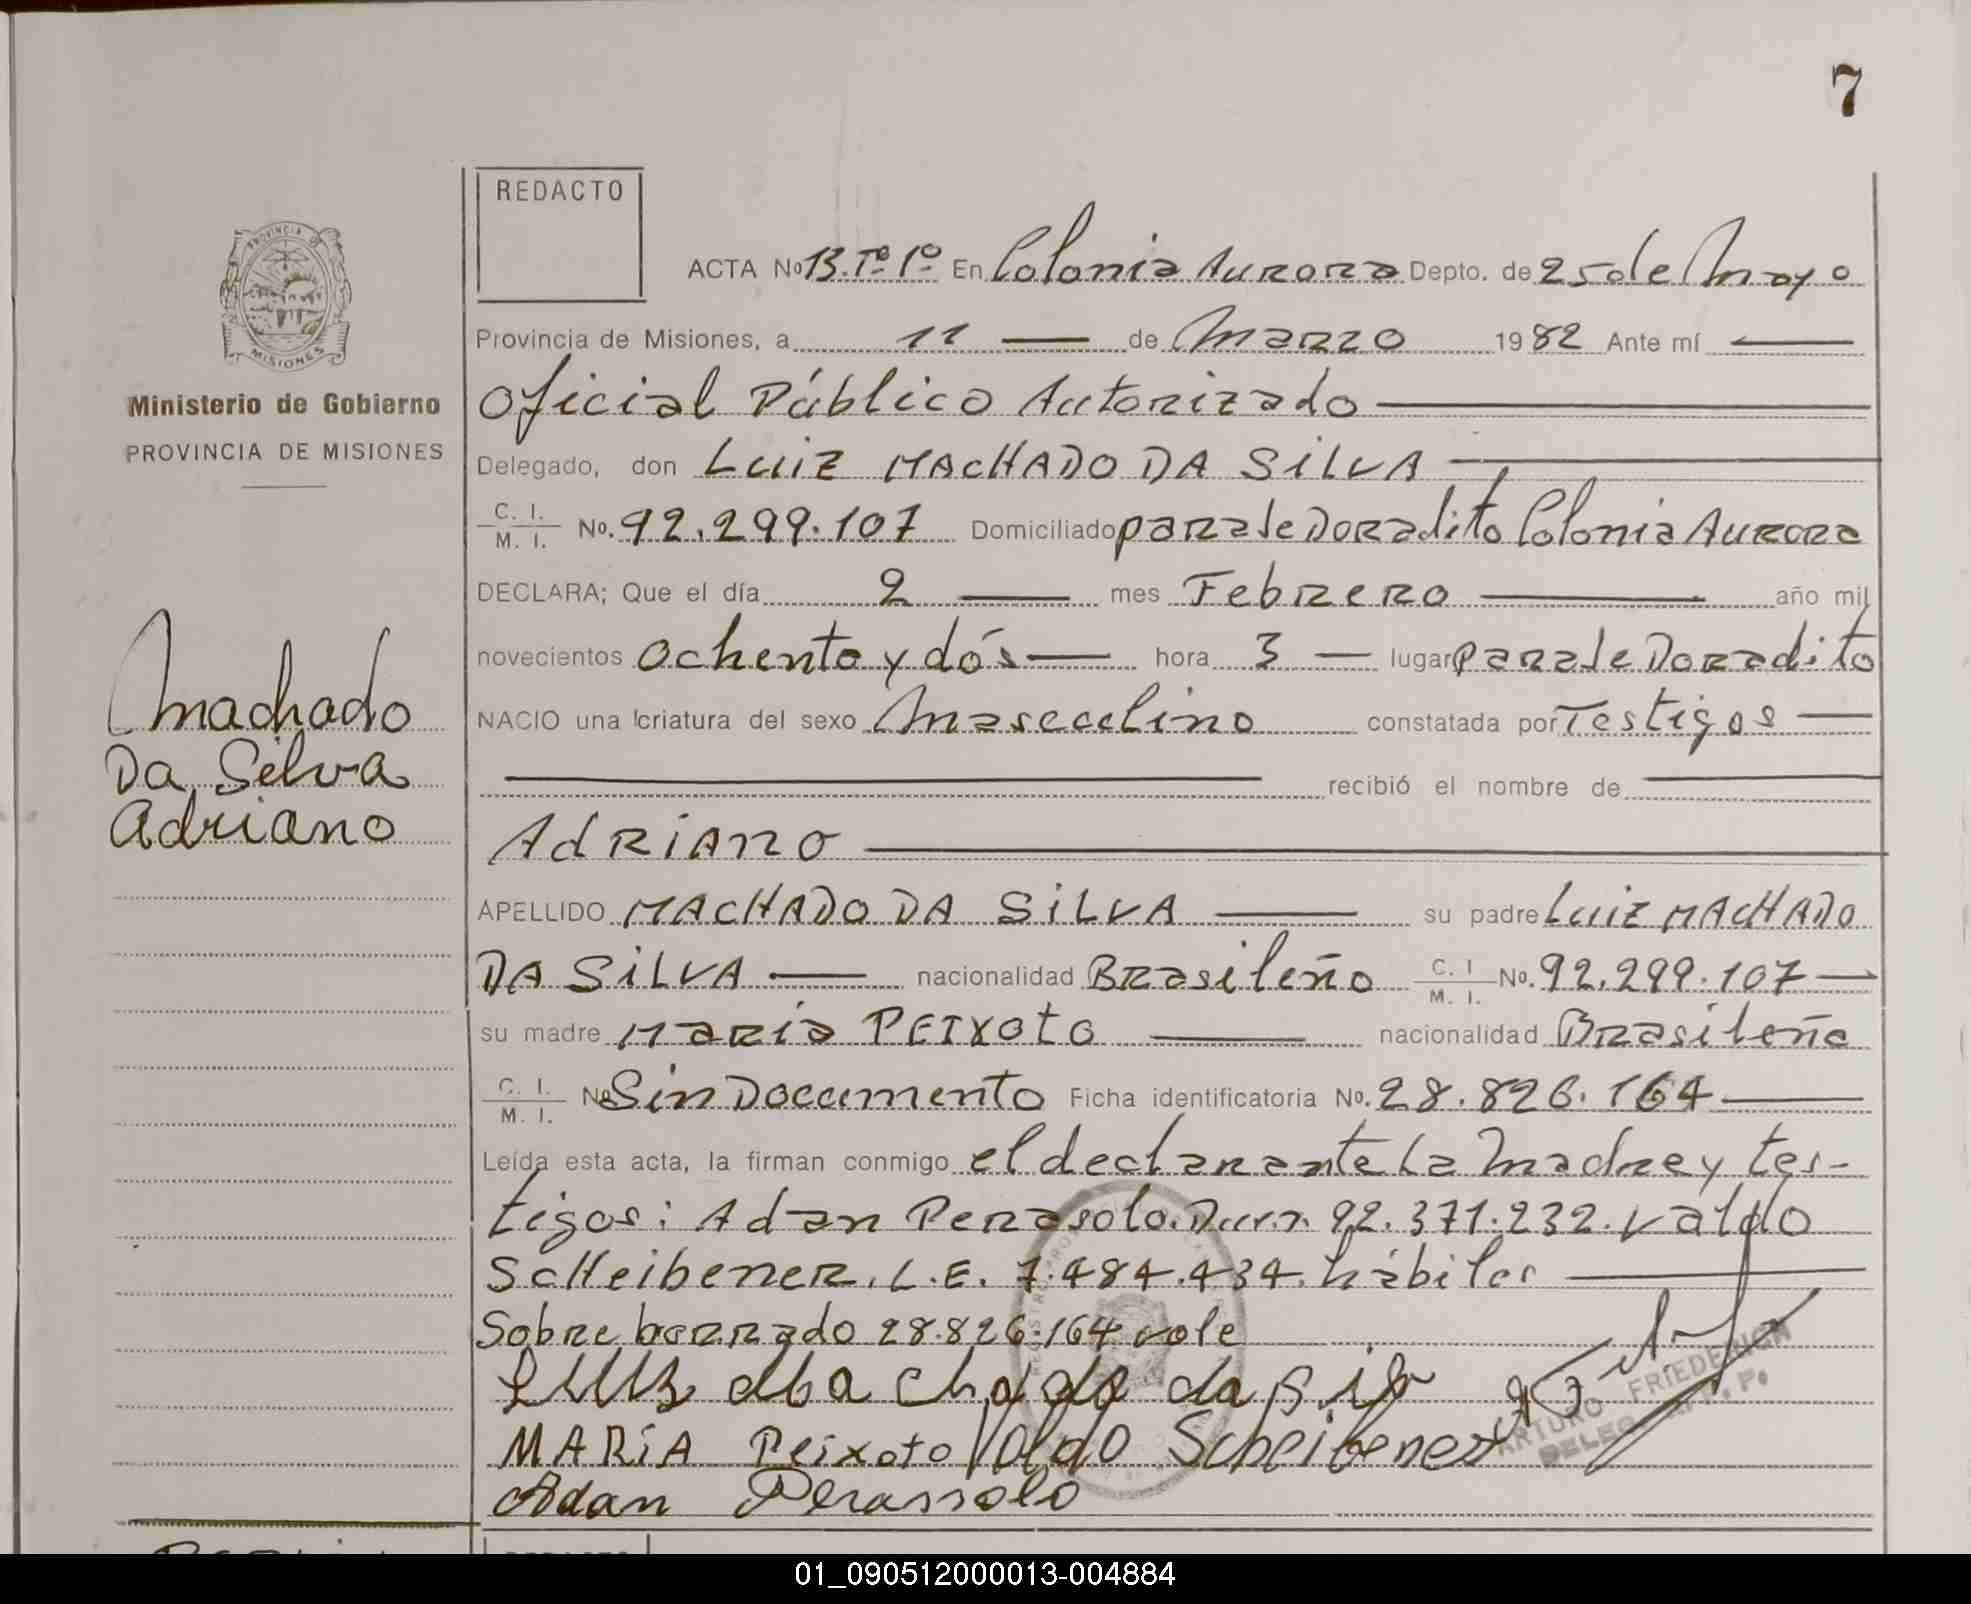 7
REDACTO
ACTA No 13. Tº 1º En Colonia Aurora Depto. de 25 de Mayo
Provincia de Misiones, a 11 — de Marzo 1982 Ante mí —
Ministerio de Gobierno
PROVINCIA DE MISIONES
Oficial Público Autorizado —
Delegado, don LUIZ MACHADO DA SILVA —
C. I.
M. I. No. 92.299.107 Domiciliado paraje Doradito Colonia Aurora
DECLARA; Que el día 2 — mes Febrero — año mil
novecientos ochenta y dós — hora 3 — lugar paraje Doradito
Machado
Da Silva
Adriano
NACIO una criatura del sexo Masculino constatada por Testigos —
— recibió el nombre de —
Adriano —
APELLIDO MACHADO DA SILVA — su padre Luiz MACHADO
DA SILVA — nacionalidad Brasileño C. I. M. I. No. 92.299.107 —
su madre María PEIXOTO — nacionalidad Brasileña
C. I. M. I. No Sin Documento Ficha identificatoria No. 28.826.164 —
Leída esta acta, la firman conmigo el declarante la Madre y tes-
tigos: Adan Perasolo. 92.371.232. Valdo
Scheibener. L.E. 7.484.434. hábiles —
Sobre borrado 28.826.164 vale
Luiz Machado da Silva
MARIA Peixoto Valdo Scheibener
ARTURO FRIEDERICH
Adan Perassolo
01_090512000013-004884